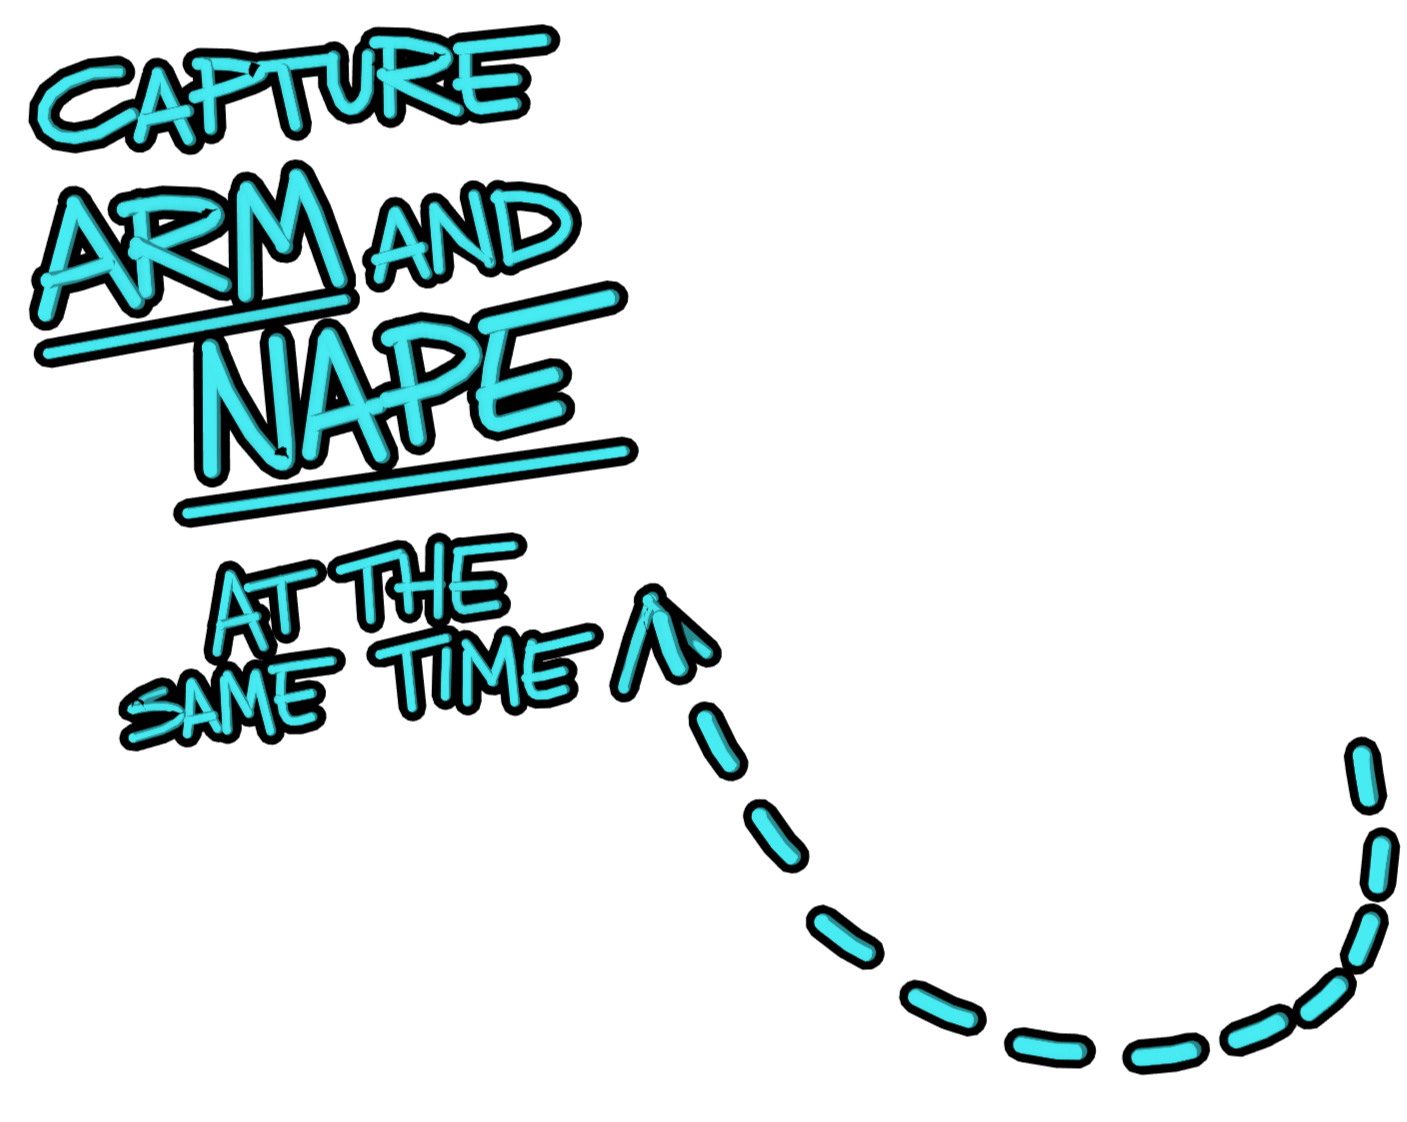 CAPTURE
ARM AND
NAPE
AT THE
SAME TIME